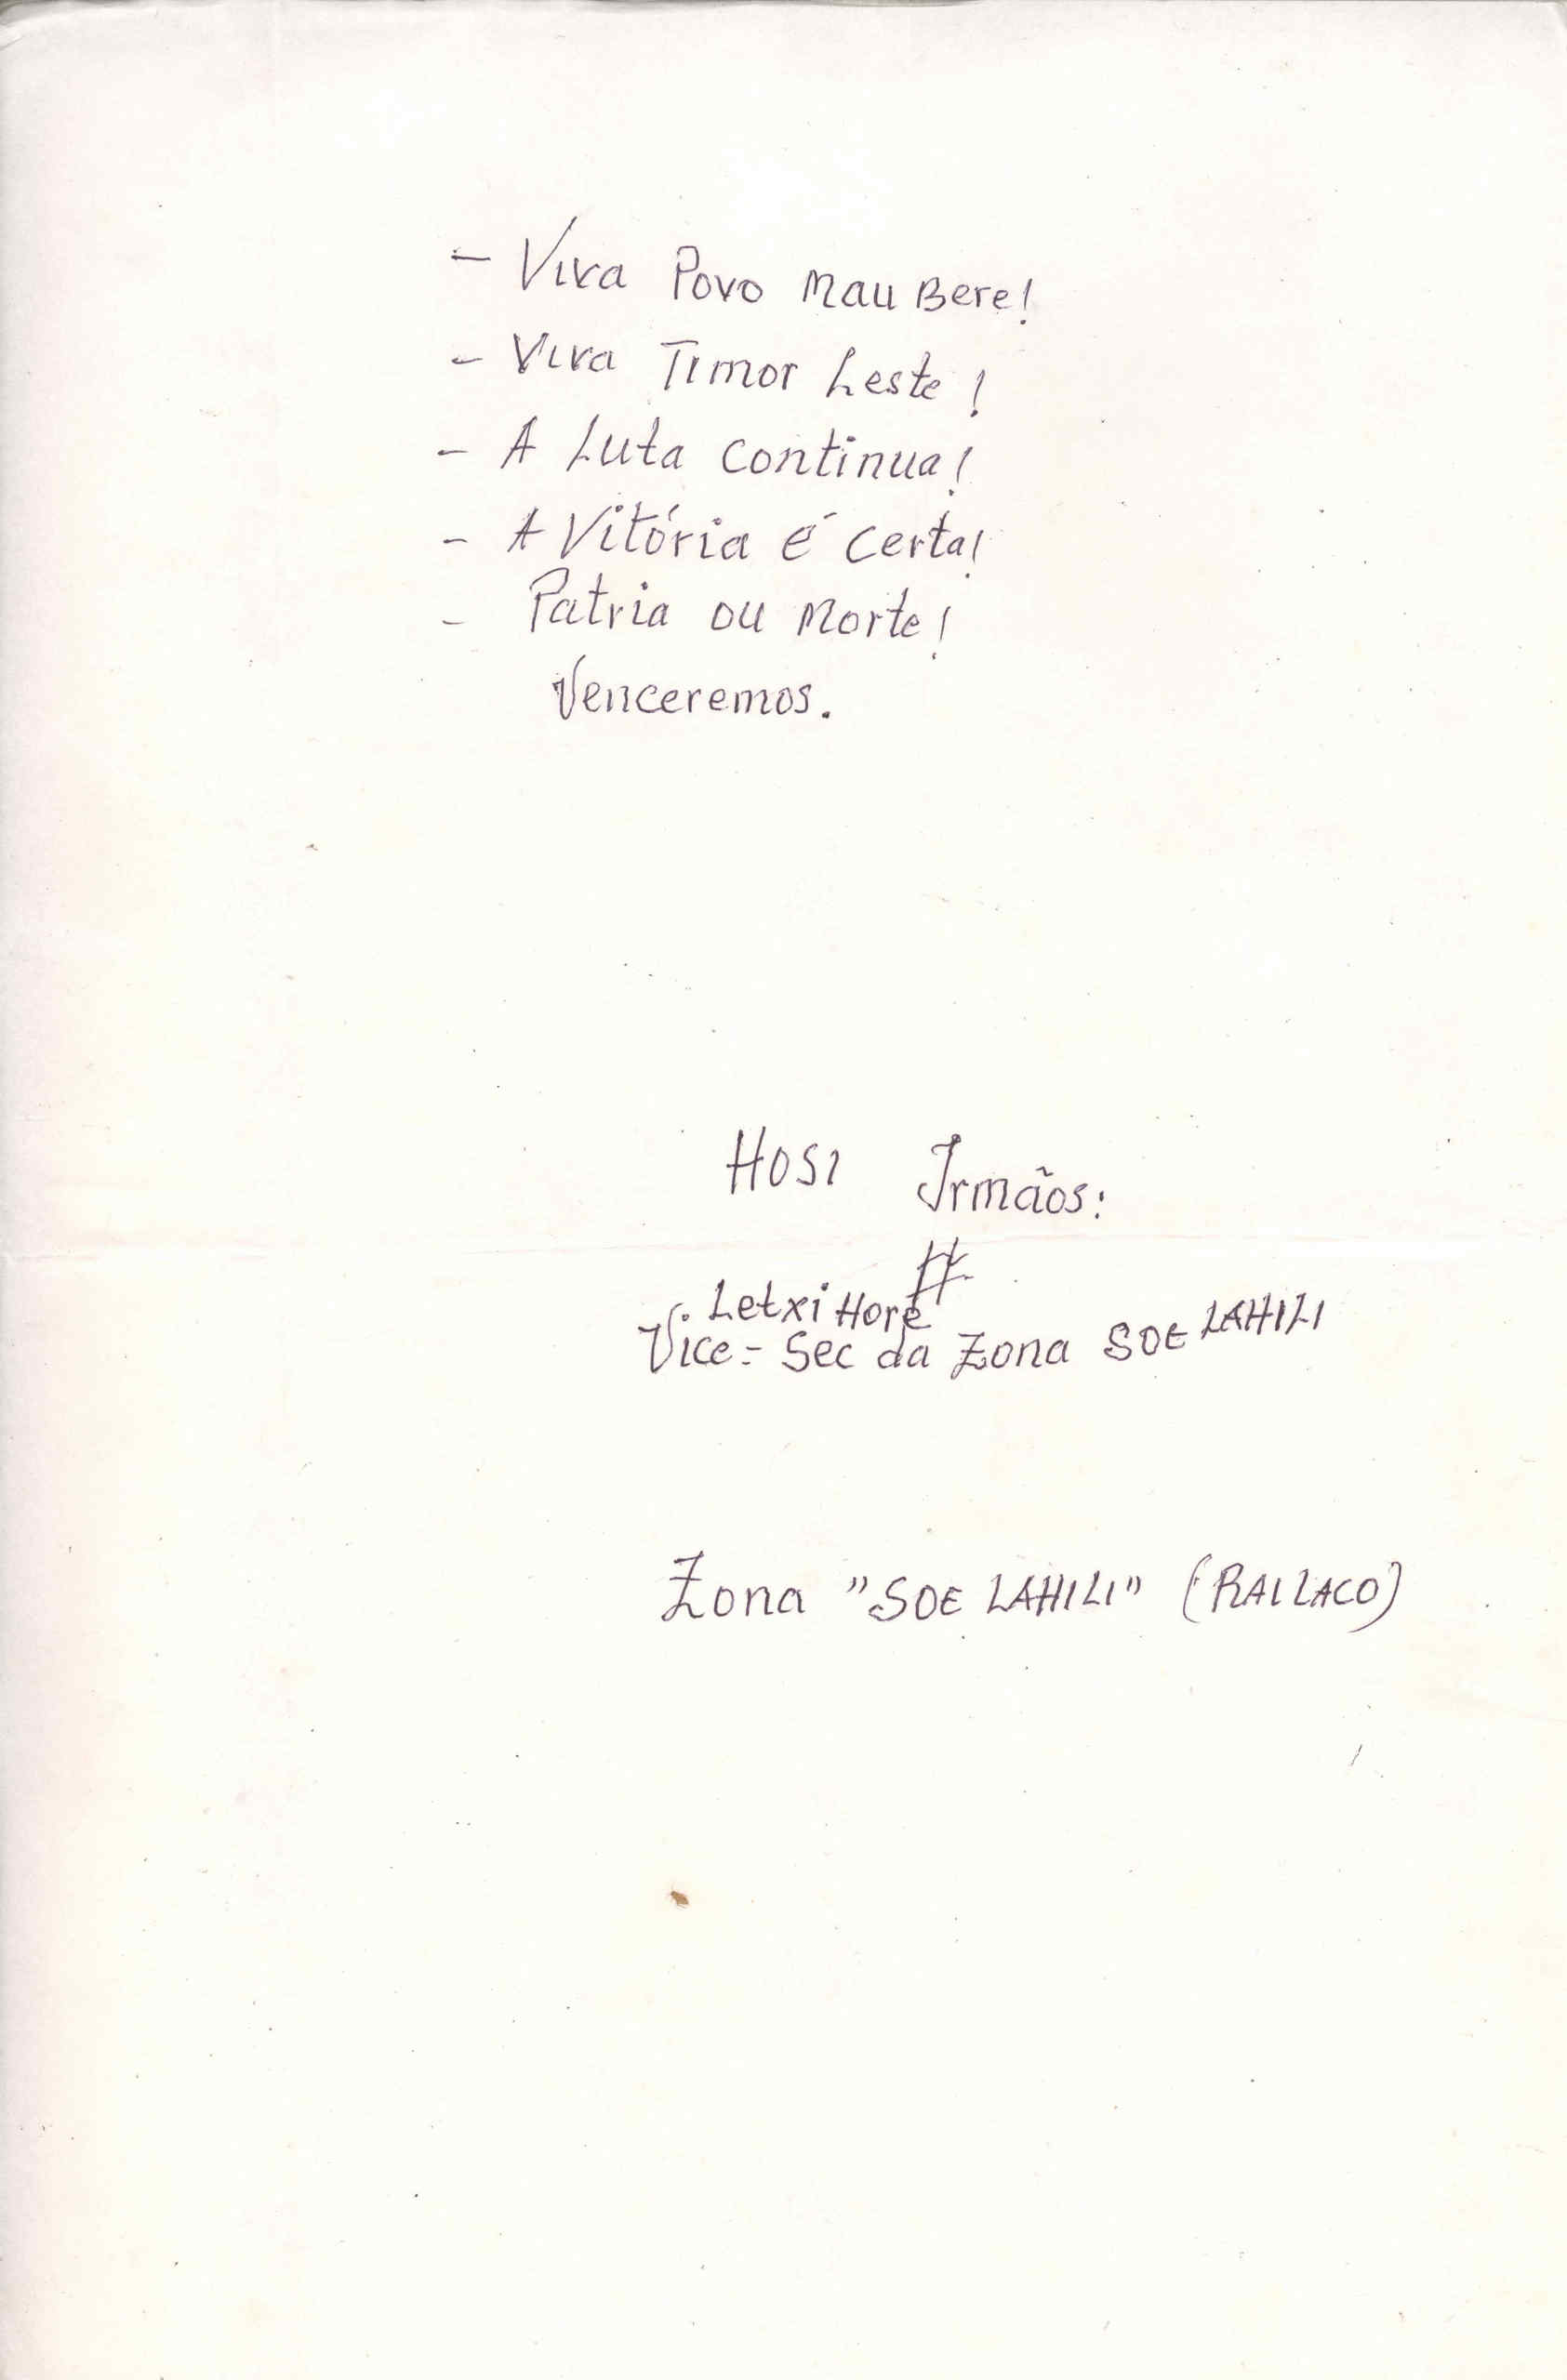 - Viva Povo Mau Bere!
- Viva Timor Leste!
- A Luta Continua!
- A Vitória é Certa!
- Patria ou Morte!
Venceremos.
HOSI Irmãos:
Letxi Hore
Vice-Sec da Zona SOE LAHILI
Zona "SOE LAHILI" (RAILACO)